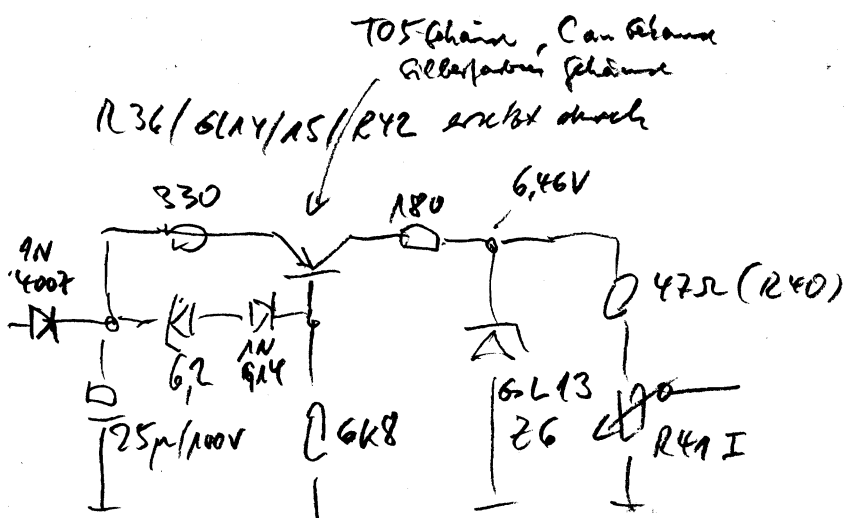 TO5-Gehäuse, Can Gehäuse
silberfarbenes Gehäuse
R36/GL14/15/R42 ersetzt durch
330
180
6,46V
1N
4007
47Ω (R40)
6,2
1N
914
25µ/100V
6K8
GL13
Z6
R41 I